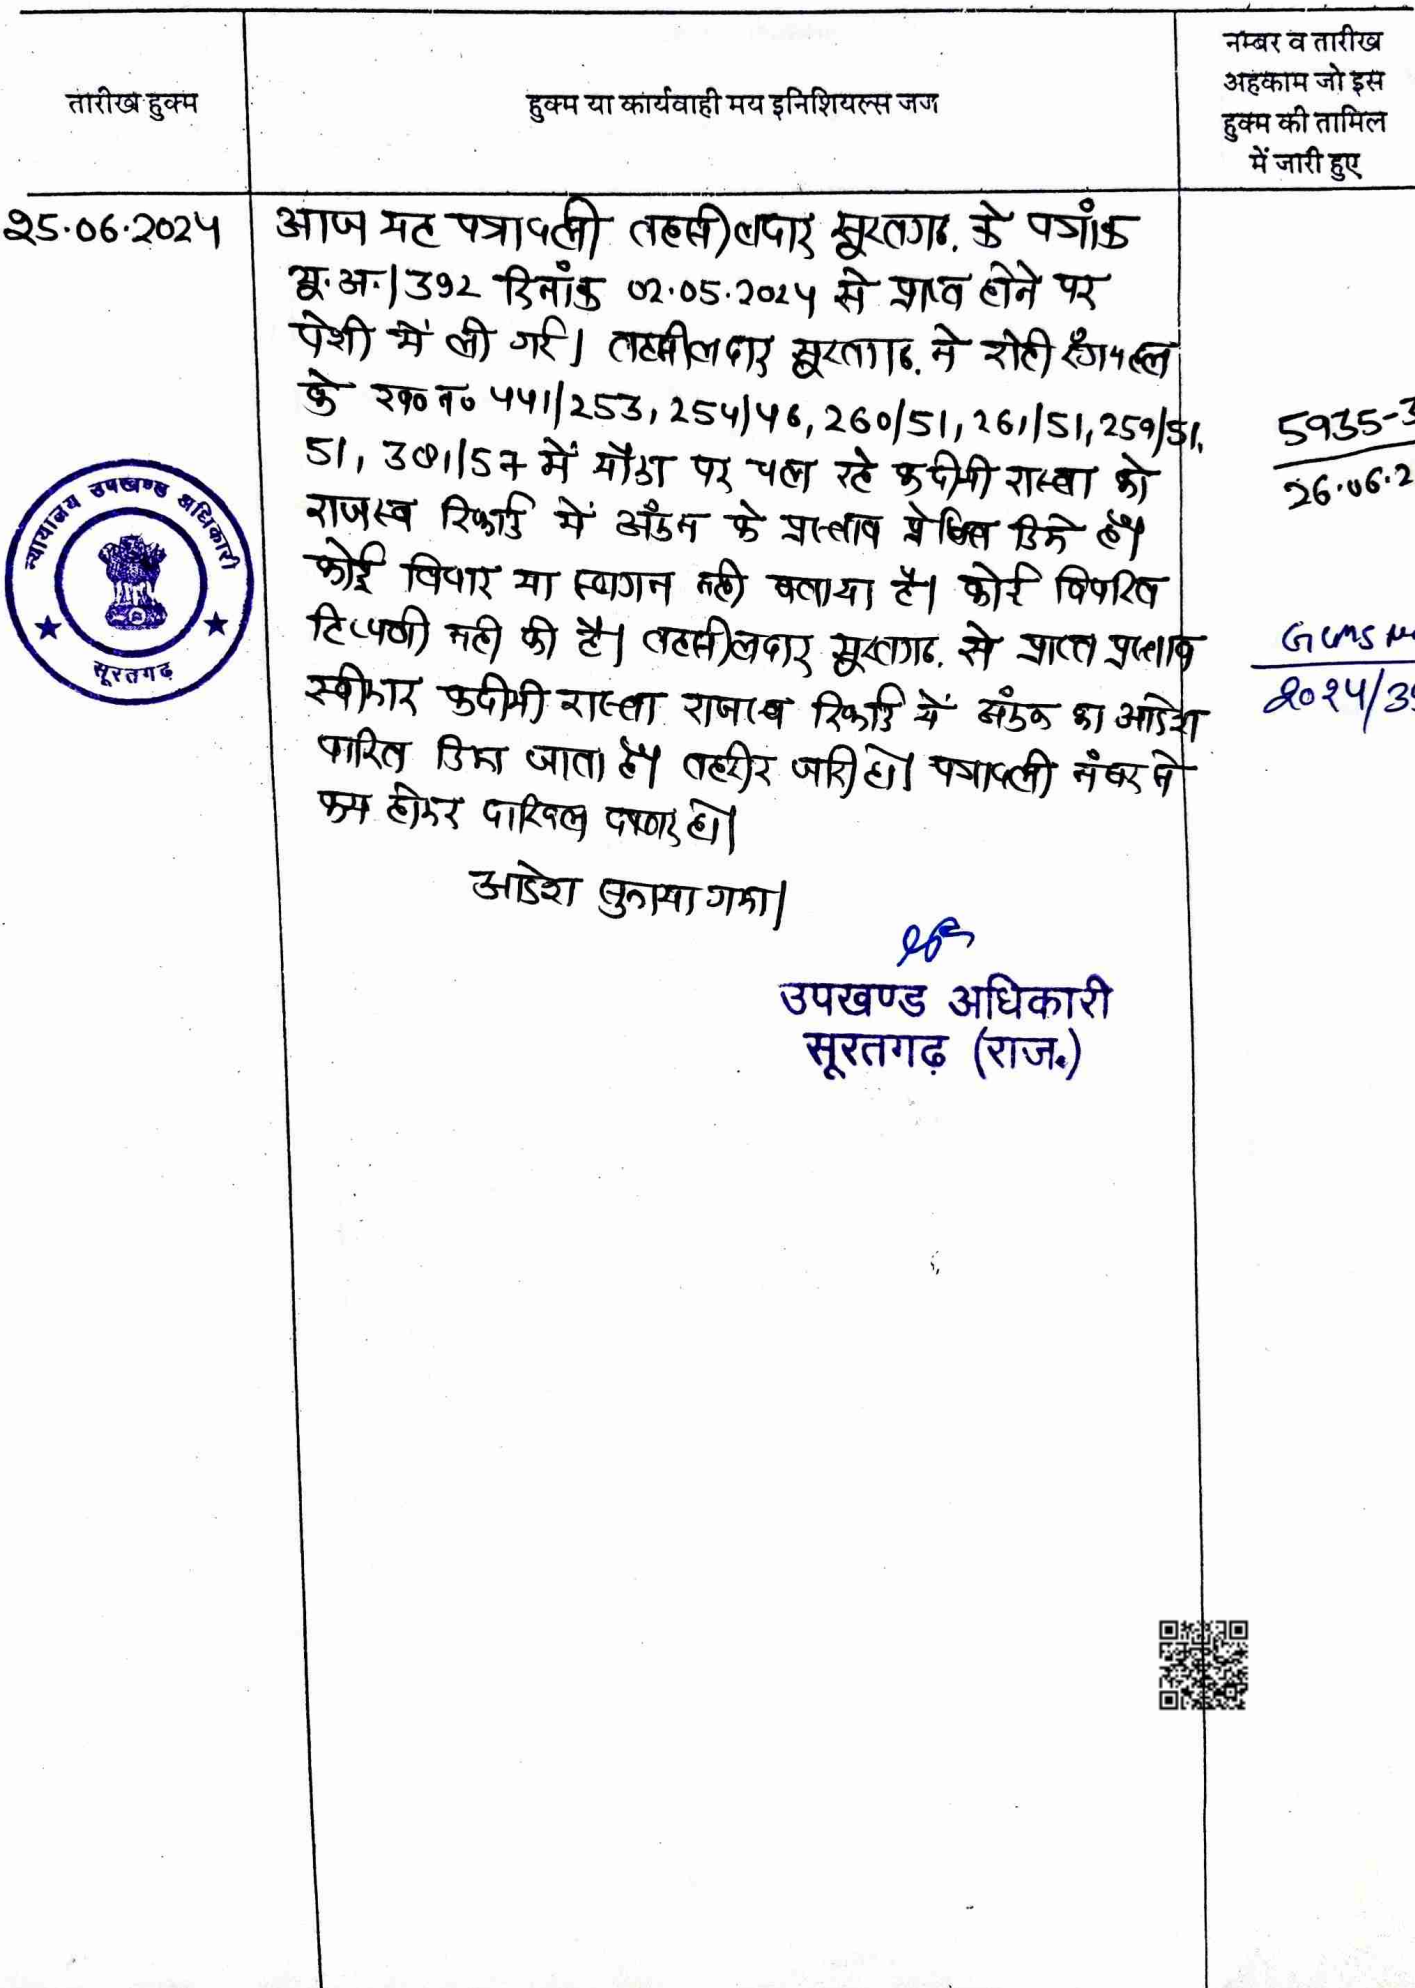 तारीख हुक्म
हुक्म या कार्यवाही मय इनिशियल्स जज
नम्बर व तारीख
अहकाम जो इस
हुक्म की तामिल
में जारी हुए
25.06.2024
आज यह पत्रावली तहसीलदार सूरतगढ. के पत्रांक
भू.अ./392 दिनांक 02.05.2024 से प्राप्त होने पर
पेशी में ली गई। तहसीलदार सूरतगढ. ने रोही रंगमहल
के ख0न0 441/253, 254/46, 260/51, 261/51, 259/51,
51, 301/57 में मौका पर चल रहे कदीमी रास्ता को
राजस्व रिकार्ड में अंकन के प्रस्ताव प्रेषित किये है।
कोई विवाद या स्थगन नही बताया है। कोई विपरित
टिप्पणी नही की है। तहसीलदार सूरतगढ. से प्राप्त प्रस्ताव
स्वीकार कदीमी रास्ता राजस्व रिकार्ड में अंकन का आदेश
पारित किया जाता है। तहरीर जारी हो। पत्रावली नंबर से
कम होकर दाखिल दफ्तर हो।
आदेश सुनाया गया।
5935-3
26.06.2
GCMS
2024/3
न्यायालय उपखण्ड अधिकारी
सूरतगढ़
उपखण्ड अधिकारी
सूरतगढ़ (राज.)